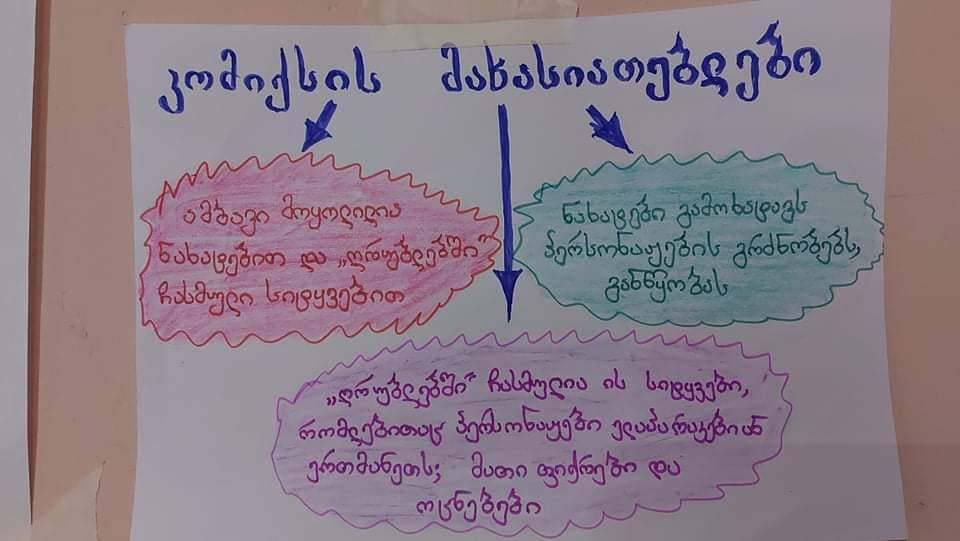 კომიქსის მახასიათებლები
ამბავი მოყოლილია
ნახატებით და „ღრუბლებში“
ჩასმული სიტყვებით
ნახატები გამოხატავს
პერსონაჟების გრძნობებს,
განწყობას
„ღრუბლებში“ ჩასმულია ის სიტყვები,
რომლებითაც პერსონაჟები ელაპარაკებიან
ერთმანეთს; მათი ფიქრები და
ოცნებები